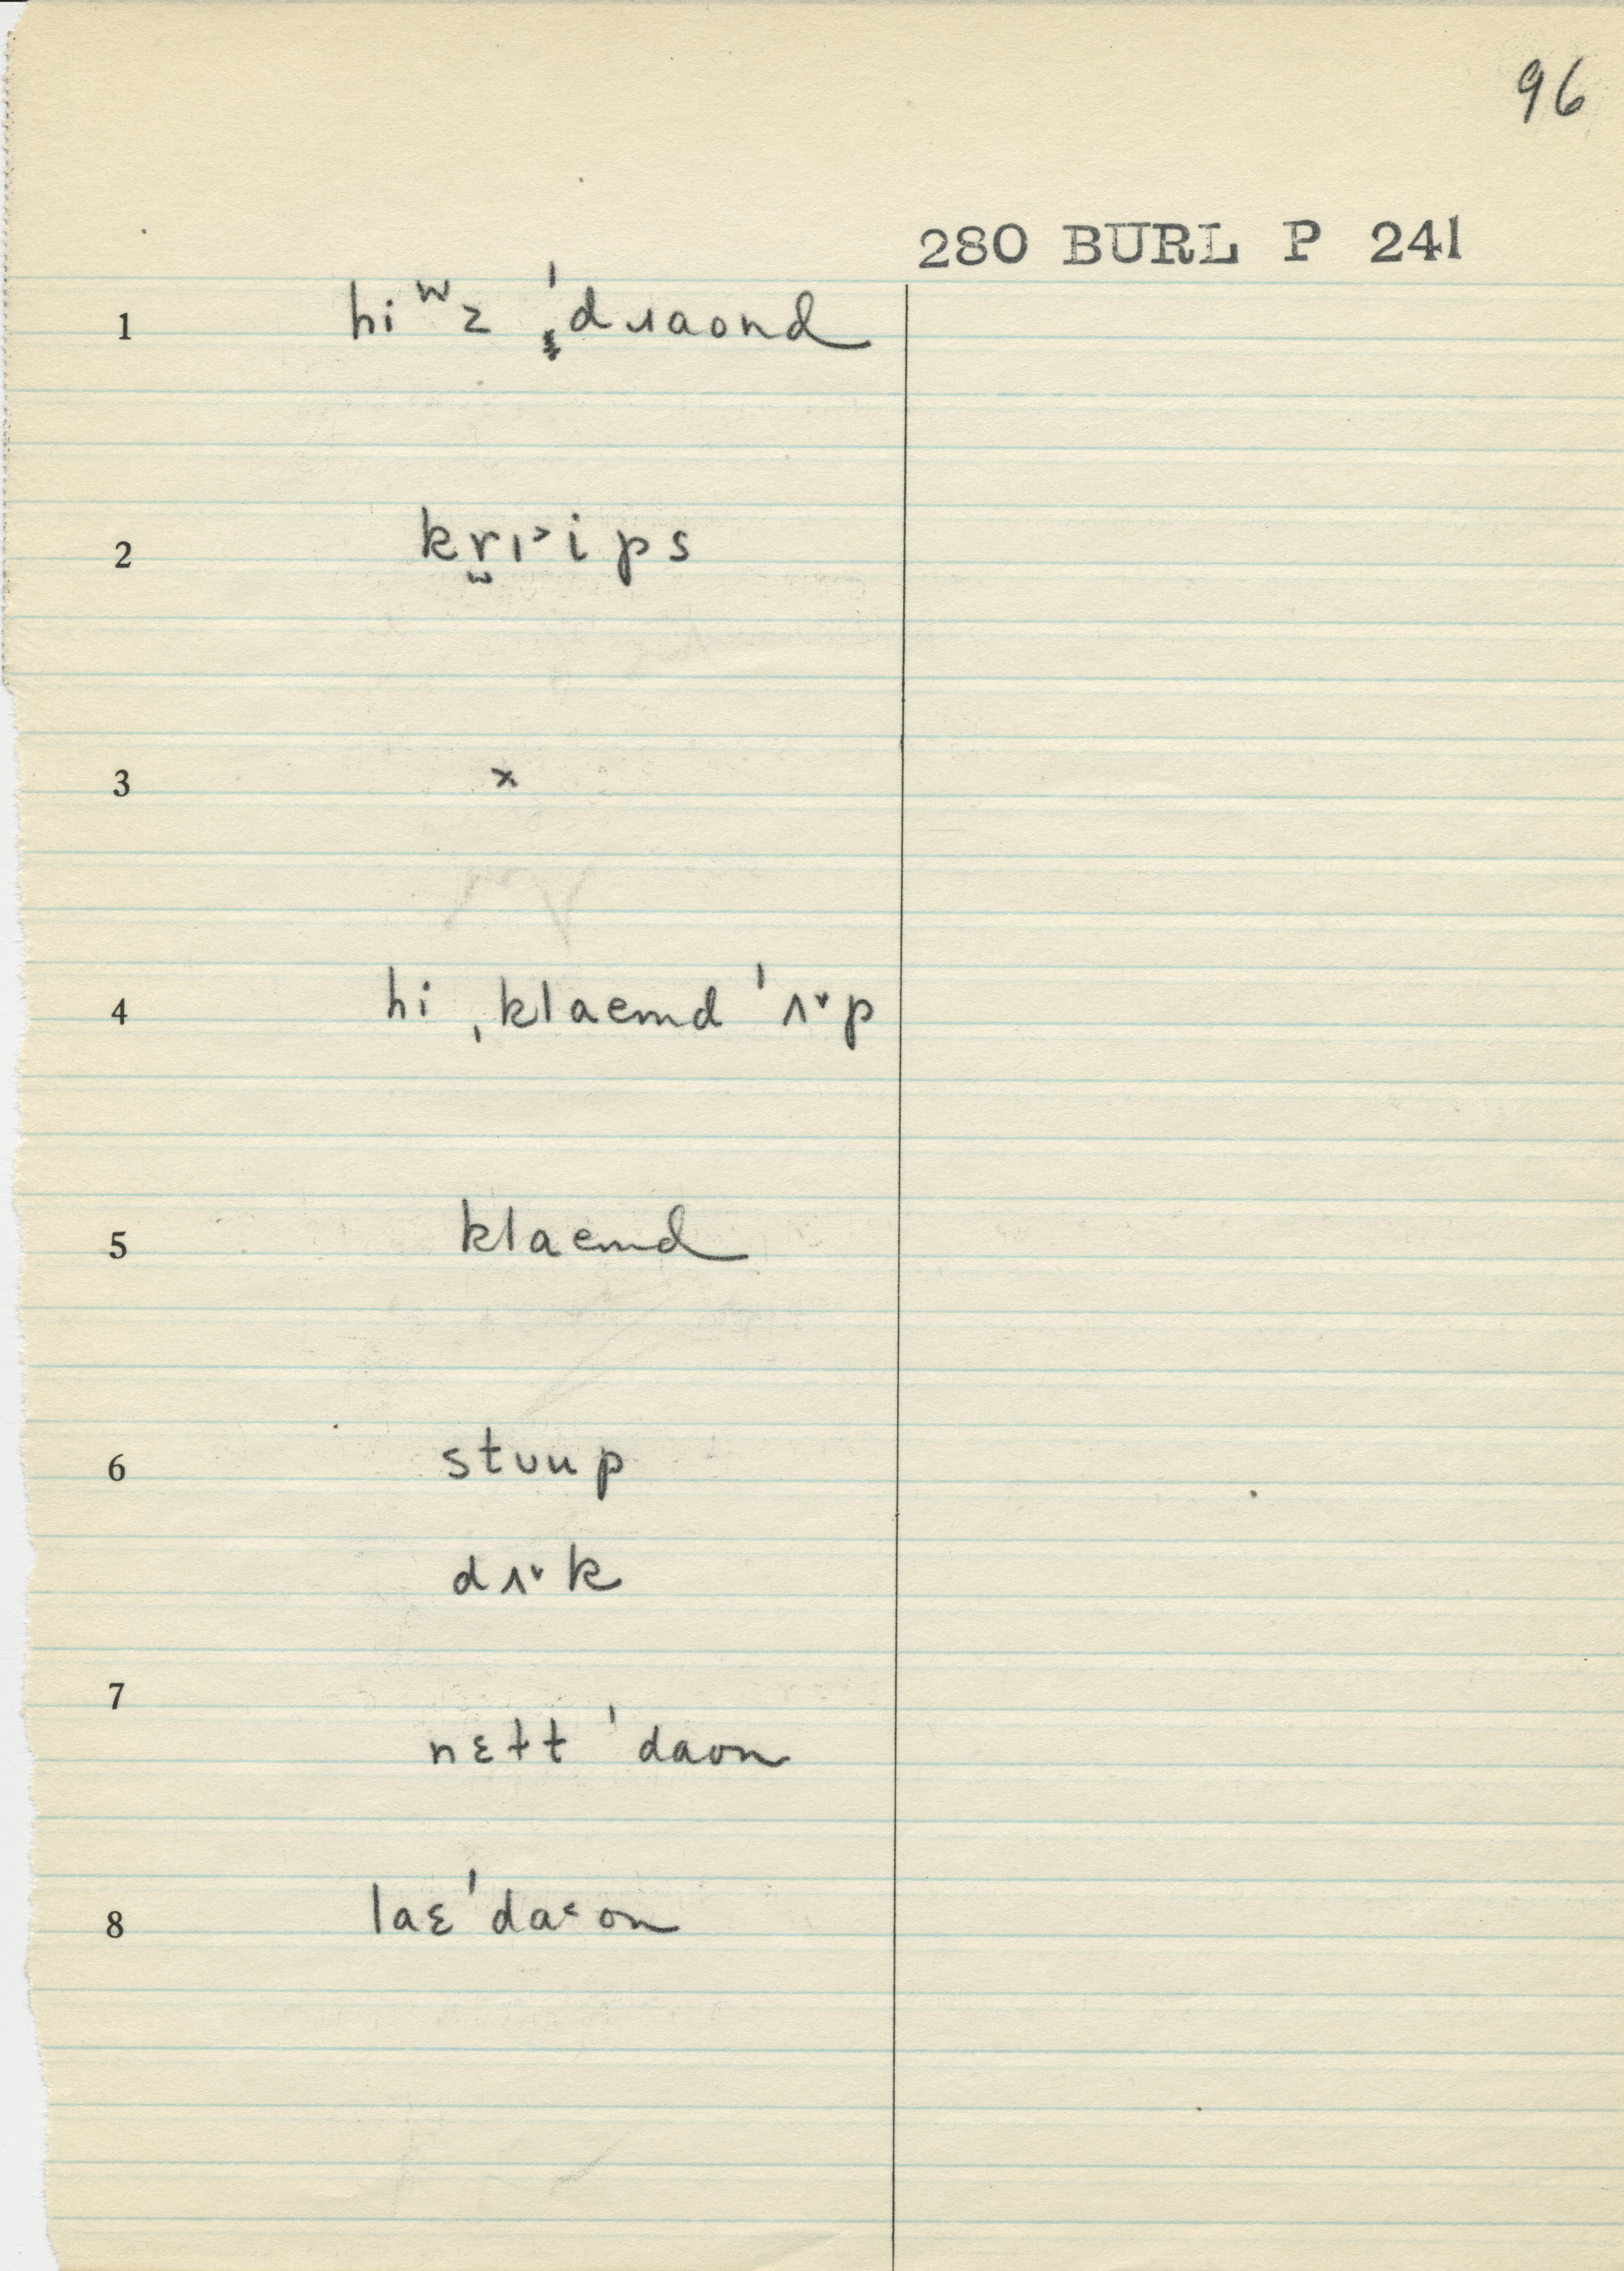 96
280 BURL P 241
1 hi ʷz ˈdɹaond
2 kr̬ɪ˃ips
3 x
4 hi ˌklaemd ˈʌ˅p
5 klaemd
6 stuup
dʌ˅k
7
nɛɫt ˈdaon
8 laɛˈda˂on